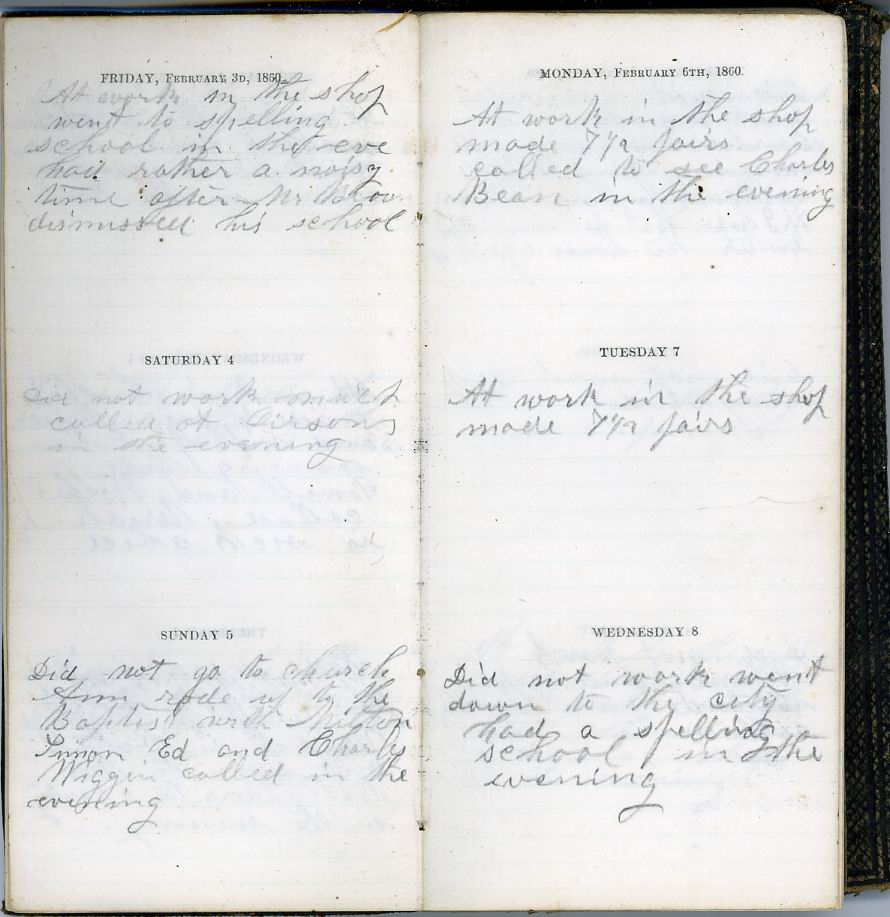 FRIDAY, FEBRUARY 3D, 1860.
At work in the shop
went to spelling
school in the eve
had rather a noisy
time after Mr
dismissed his school
SATURDAY 4
Did not work much
called at
in the evening
SUNDAY 5
Did not go to church
Ann rode up to the
Baptist with Milton
Ed and Charles
Wiggin called in the
evening
MONDAY, FEBRUARY 6TH, 1860.
At work in the shop
made 7 1/2 pairs
called to see Charles
Bean in the evening
TUESDAY 7
At work in the shop
made 7 1/2 pairs
WEDNESDAY 8
Did not work went
down to the city
had a spelling
school in the
evening